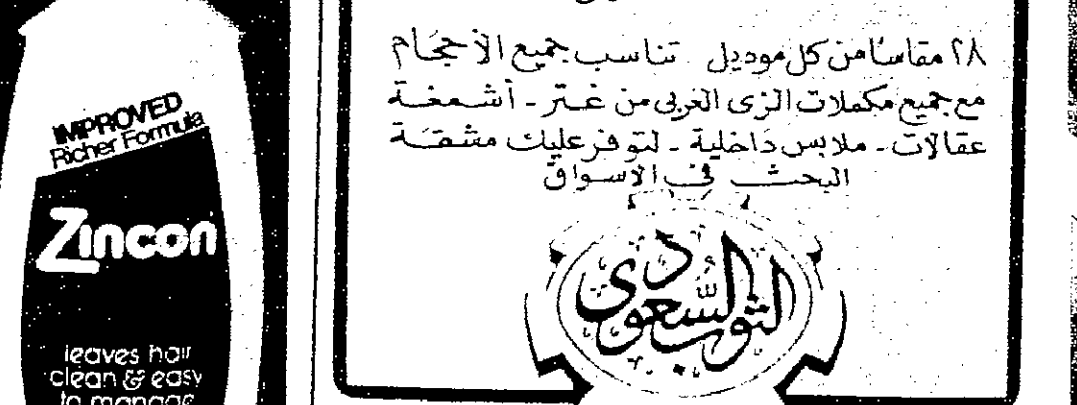 IMPROVED
Richer Formula
Zincon
leaves hair
clean & easy
to manage
٢٨ مقاسًا من كل موديل تناسب جميع الأحجام
مع جميع مكملات الزى العربى من غتر - أشمغة
عقالات - ملابس داخلية - لتوفر عليك مشقة
البحث في الأسواق
الثوب السعودى